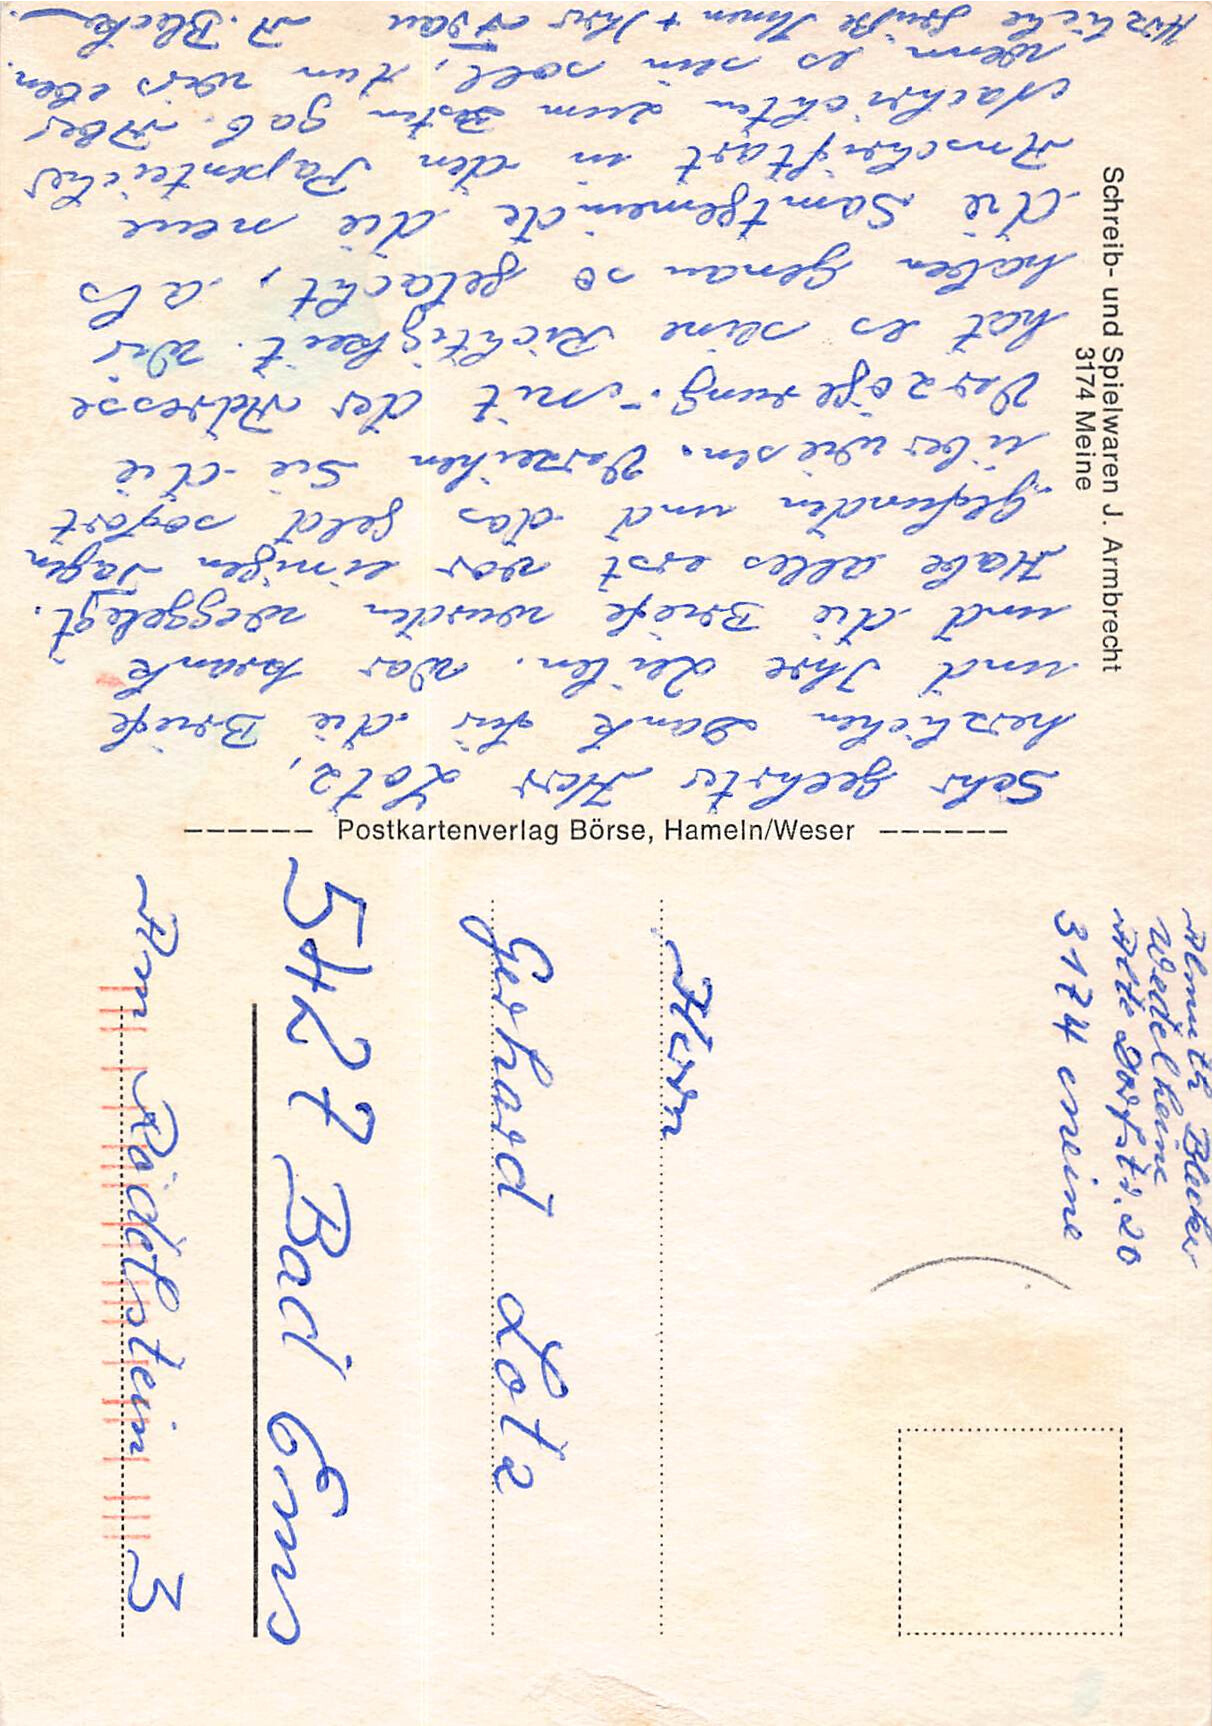 Sehr geehrter Herr Lotz,
herzlichen Dank für die Briefe
und Ihre Zeilen. War krank
und die Briefe wurden weggelegt.
Habe alles erst vor einigen Tagen
gefunden und das Geld sofort
überwiesen. Verzeihen Sie die
Verzögerung. - Mit der Adresse
hat es seine Richtigkeit. Wir
haben genau so gelacht, als
die Samtgemeinde die neue
Anschriftart in den Papenteicher
Nachrichten zum Besten gab. Aber
wenn es sein soll, tun wir's eben.
Herzliche Grüße Ihnen + Ihrer Frau A. Blecker
Schreib- und Spielwaren J. Armbrecht
3174 Meine
------ Postkartenverlag Börse, Hameln/Weser ------
Almuth Blecker
Wedelheine
Alte Dorfstr. 20
3174 Meine
Herrn
Gerhard Lotz
5427 Bad Ems
Am Rödelstein 3